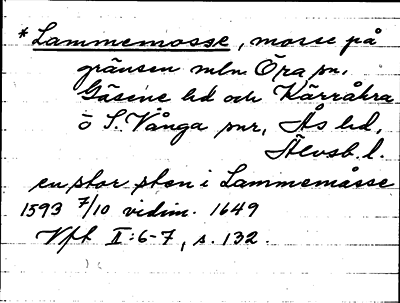 *Lammemosse, mosse på
gränsen mln Öra sn,
Gäsene hd och Kärråkra
ö S. Vånga snr, Ås hd,
Älvsb. l.
en stor sten i Lammemåsse
1593 7/10 vidim. 1649
Vpt II:6-7, s. 132.